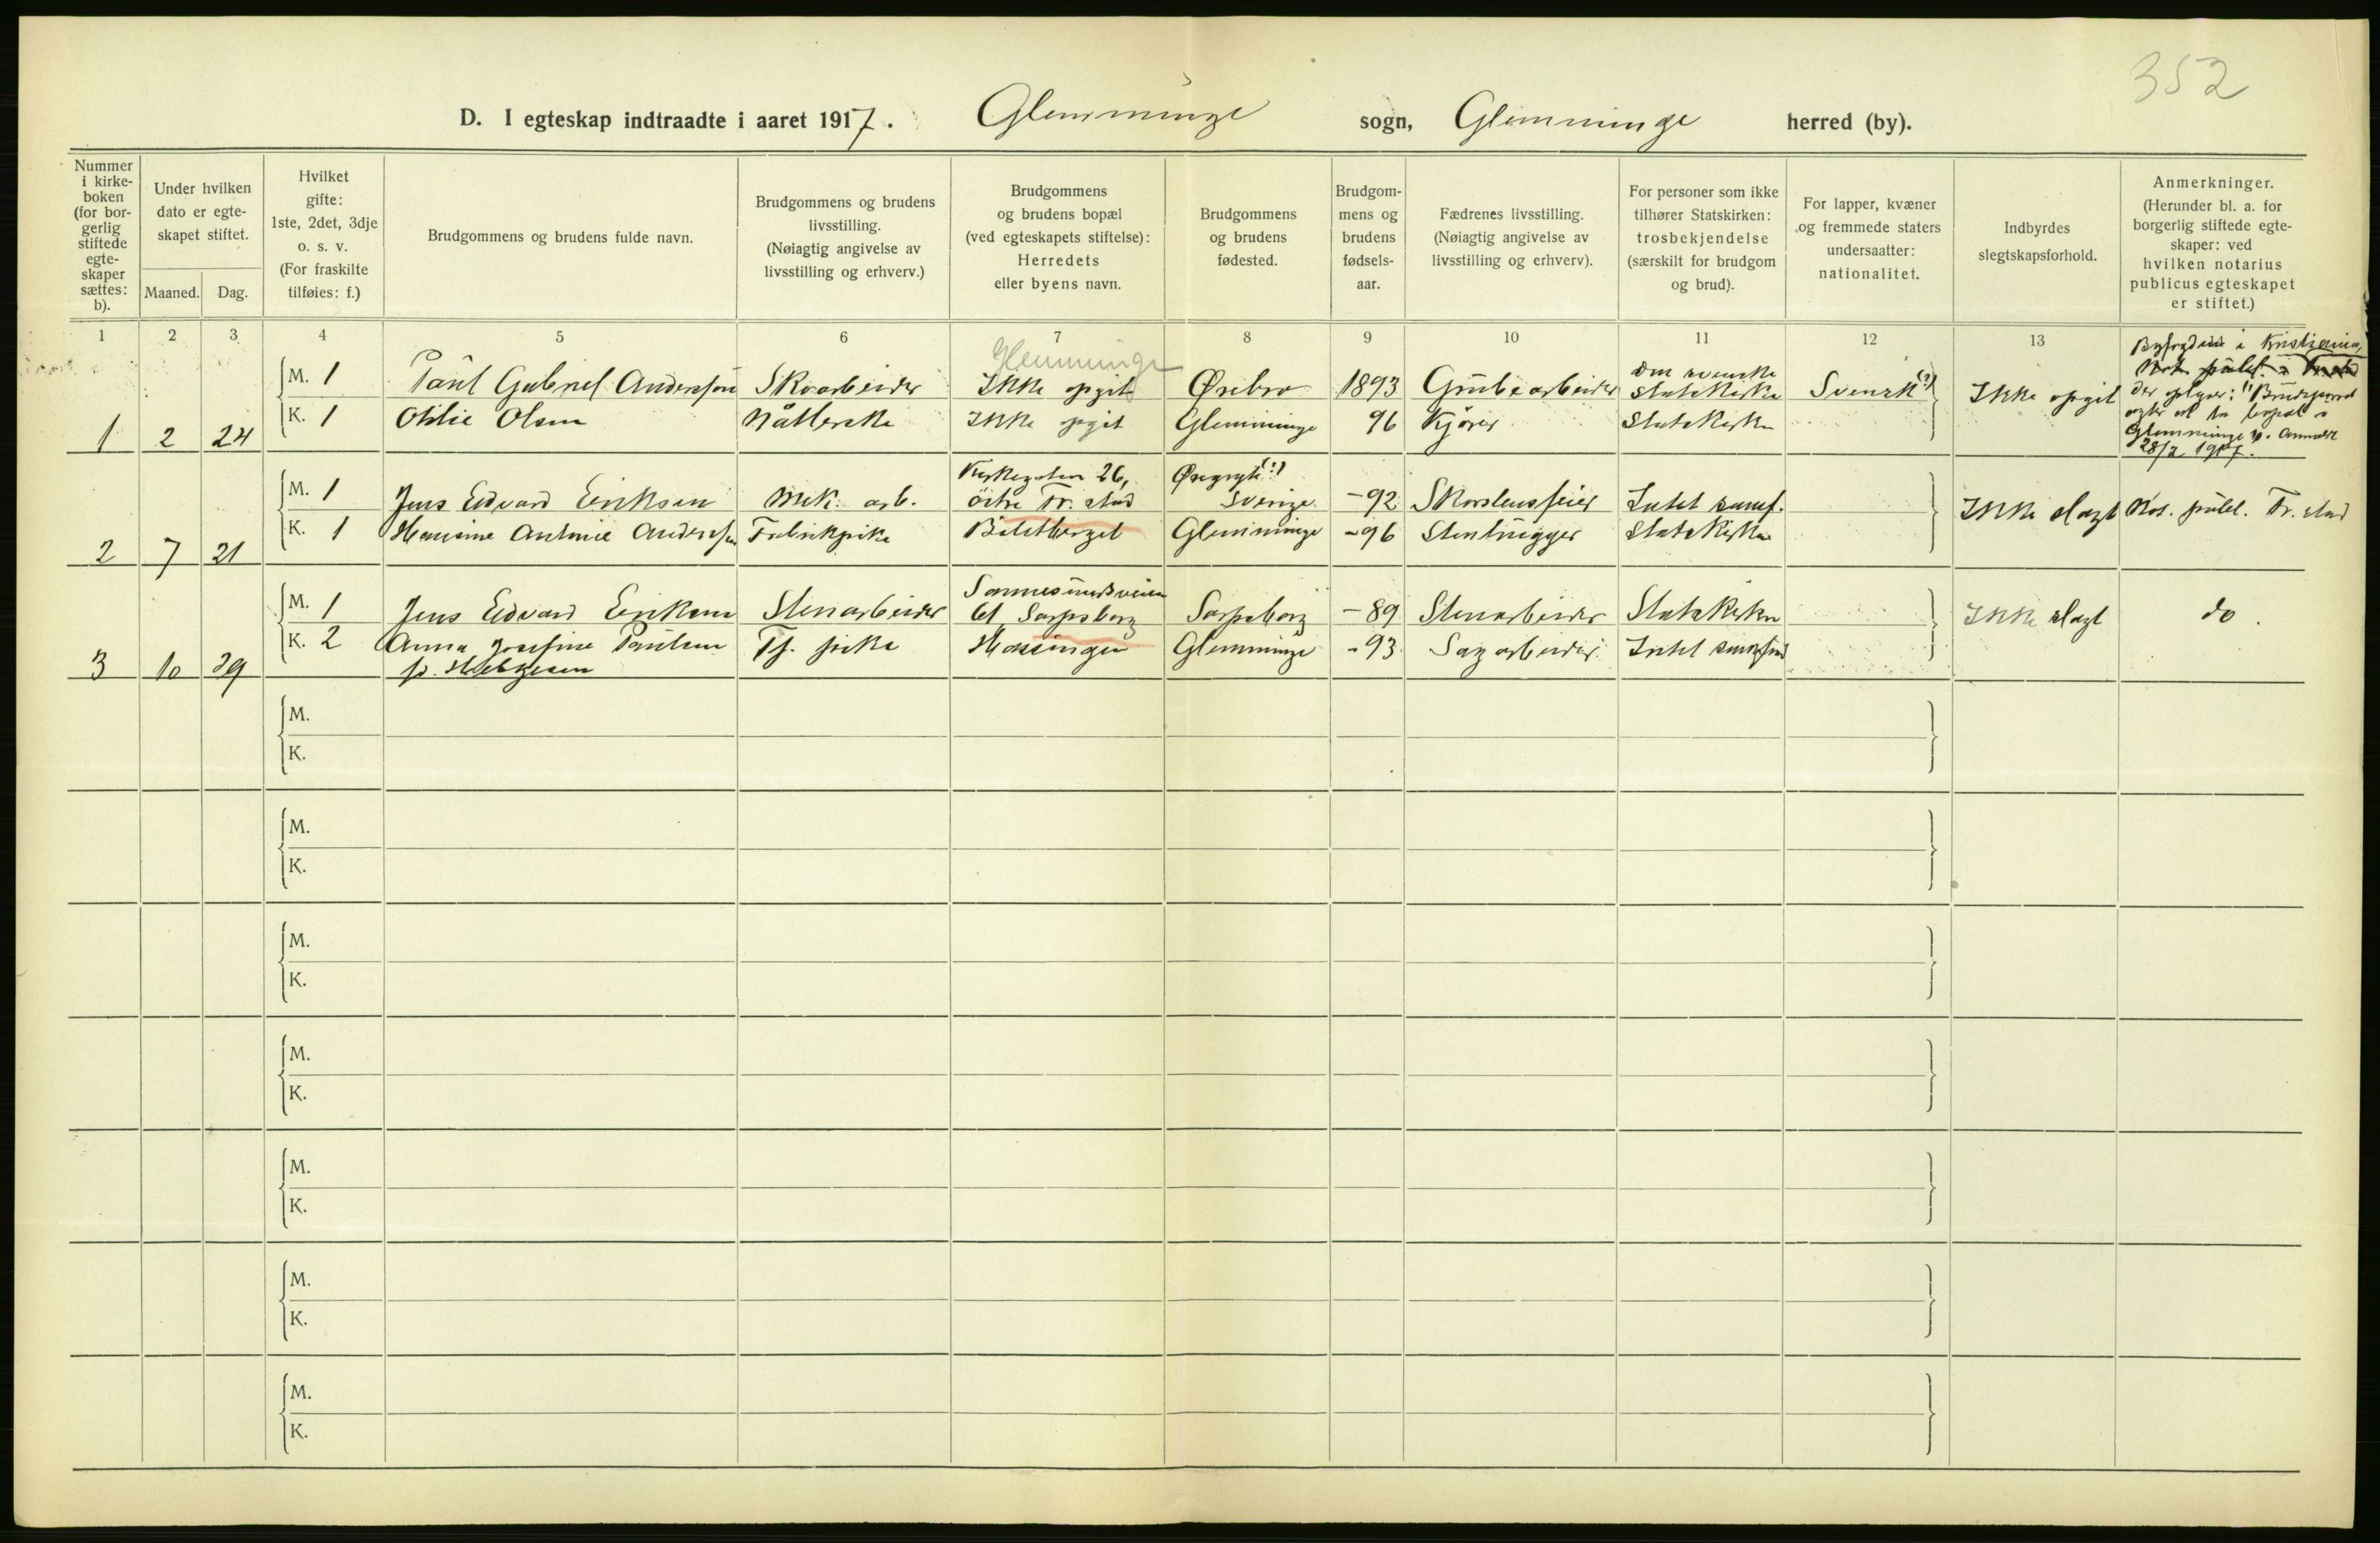 352
D. I egteskap indtraadte i aaret 1917. Glemminge sogn, Glemminge herred (by).
Nummer i kirke-boken (for bor-gerlig stiftede egte-skaper sættes: b).
Under hvilken dato er egte-skapet stiftet.
Maaned. Dag.
Hvilket gifte: 1ste, 2det, 3dje o. s. v. (For fraskilte tilføies: f.)
Brudgommens og brudens fulde navn.
Brudgommens og brudens livsstilling. (Nøiagtig angivelse av livsstilling og erhverv.)
Brudgommens og brudens bopæl (ved egteskapets stiftelse): Herredets eller byens navn.
Brudgommens og brudens fødested.
Brudgom-mens og brudens fødsels-aar.
Fædrenes livsstilling. (Nøiagtig angivelse av livsstilling og erhverv).
For personer som ikke tilhører Statskirken: trosbekjendelse (særskilt for brudgom og brud).
For lapper, kvæner og fremmede staters undersaatter: nationalitet.
Indbyrdes slegtskapsforhold.
Anmerkninger. (Herunder bl. a. for borgerlig stiftede egte-skaper: ved hvilken notarius publicus egteskapet er stiftet.)
1 2 3 4 5 6 7 8 9 10 11 12 13
Glemminge
M. 1 Paul Gabriel Anderssön Skoarbeider Ikke opgit Örebro 1893 Grubearbeider Den svenske statskirke Svensk (?)
K. 1 Otilie Olsen Nåtlerske Ikke opgit Glemminge 96 Kjörer Statskirken
1 2 24
Ikke opgit
Byfogden i Kristiania,
der oplyser: "Brudeparret
agter at ta bopæl i
Glemminge". Anmeldt
28/2 1917.
M. 1 Jens Edvard Eriksen Mek. arb. Kirkegaten 26, östre Fr.stad Örgryte (?) Sverige -92 Skorstensfeier Intet samf.
K. 1 Hansine Antonie Andersen Fabrikpike Glemminge -96 Stenhugger Statskirken
2 7 21
Ikke slegt Not. publ. Fr.stad
M. 1 Jens Edvard Eriksen Stenarbeider Sannesundsveien 61, Sarpsborg Sarpsborg -89 Stenarbeider Statskirken
K. 2 Anna Josefine Paulsen Tj. pike Hassingen Glemminge -93 Sagarbeider Intet samfund
f. Helgesen
3 10 29
Ikke slegt do.
M.
K.
M.
K.
M.
K.
M.
K.
M.
K.
M.
K.
M.
K.